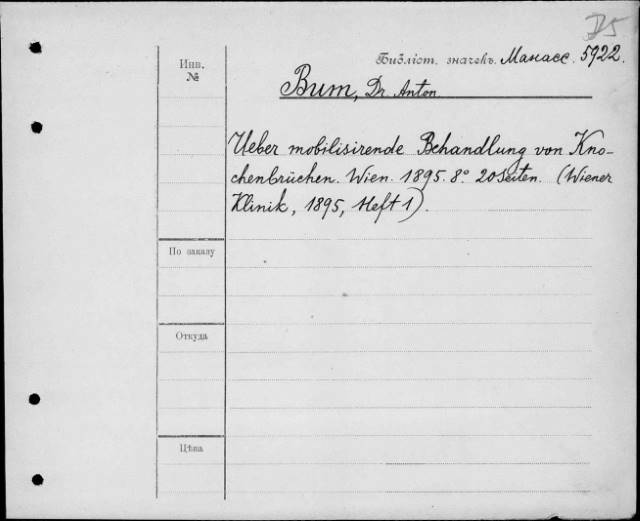 D5
Инв.
№
Библіот. значекъ. Манасс. 5922.
Bum, Dr. Anton.
Ueber mobilisirende Behandlung von Kno-
chenbrüchen. Wien. 1895. 8º. 20 Seiten. (Wiener
Klinik, 1895, Heft 1).
По заказу
Откуда
Цѣна